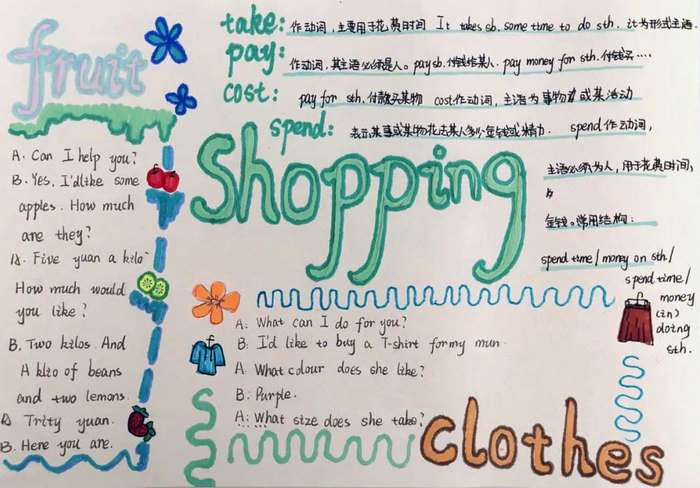 fruit
take: 作动词，主要用于花费时间 It takes sb. some time to do sth. it为形式主语
pay: 作动词，其主语必须是人。pay sb. 付钱给某人. pay money for sth. 付钱买····
cost: pay for sth. 付款买某物 cost作动词，主语为事物或某活动
spend: 表示某事或某物花去某人多少金钱或精力. spend作动词，
主语必须为人，用于花费时间，
金钱。常用结构：
spend time/money on sth./
spend time/
money
(in)
doing
sth.
Shopping
A. Can I help you?
B. Yes, I'dlike some
apples. How much
are they?
A. Five yuan a kilo
How much would
you like?
B. Two kilos. And
A klio of beans
and two lemons.
A Trity yuan.
B. Here you are.
A. What can I do for you?
B: I'd like to buy a T-shirt for my mun.
A. What colour does she like?
B. Purple.
A: What size does she take?
clothes